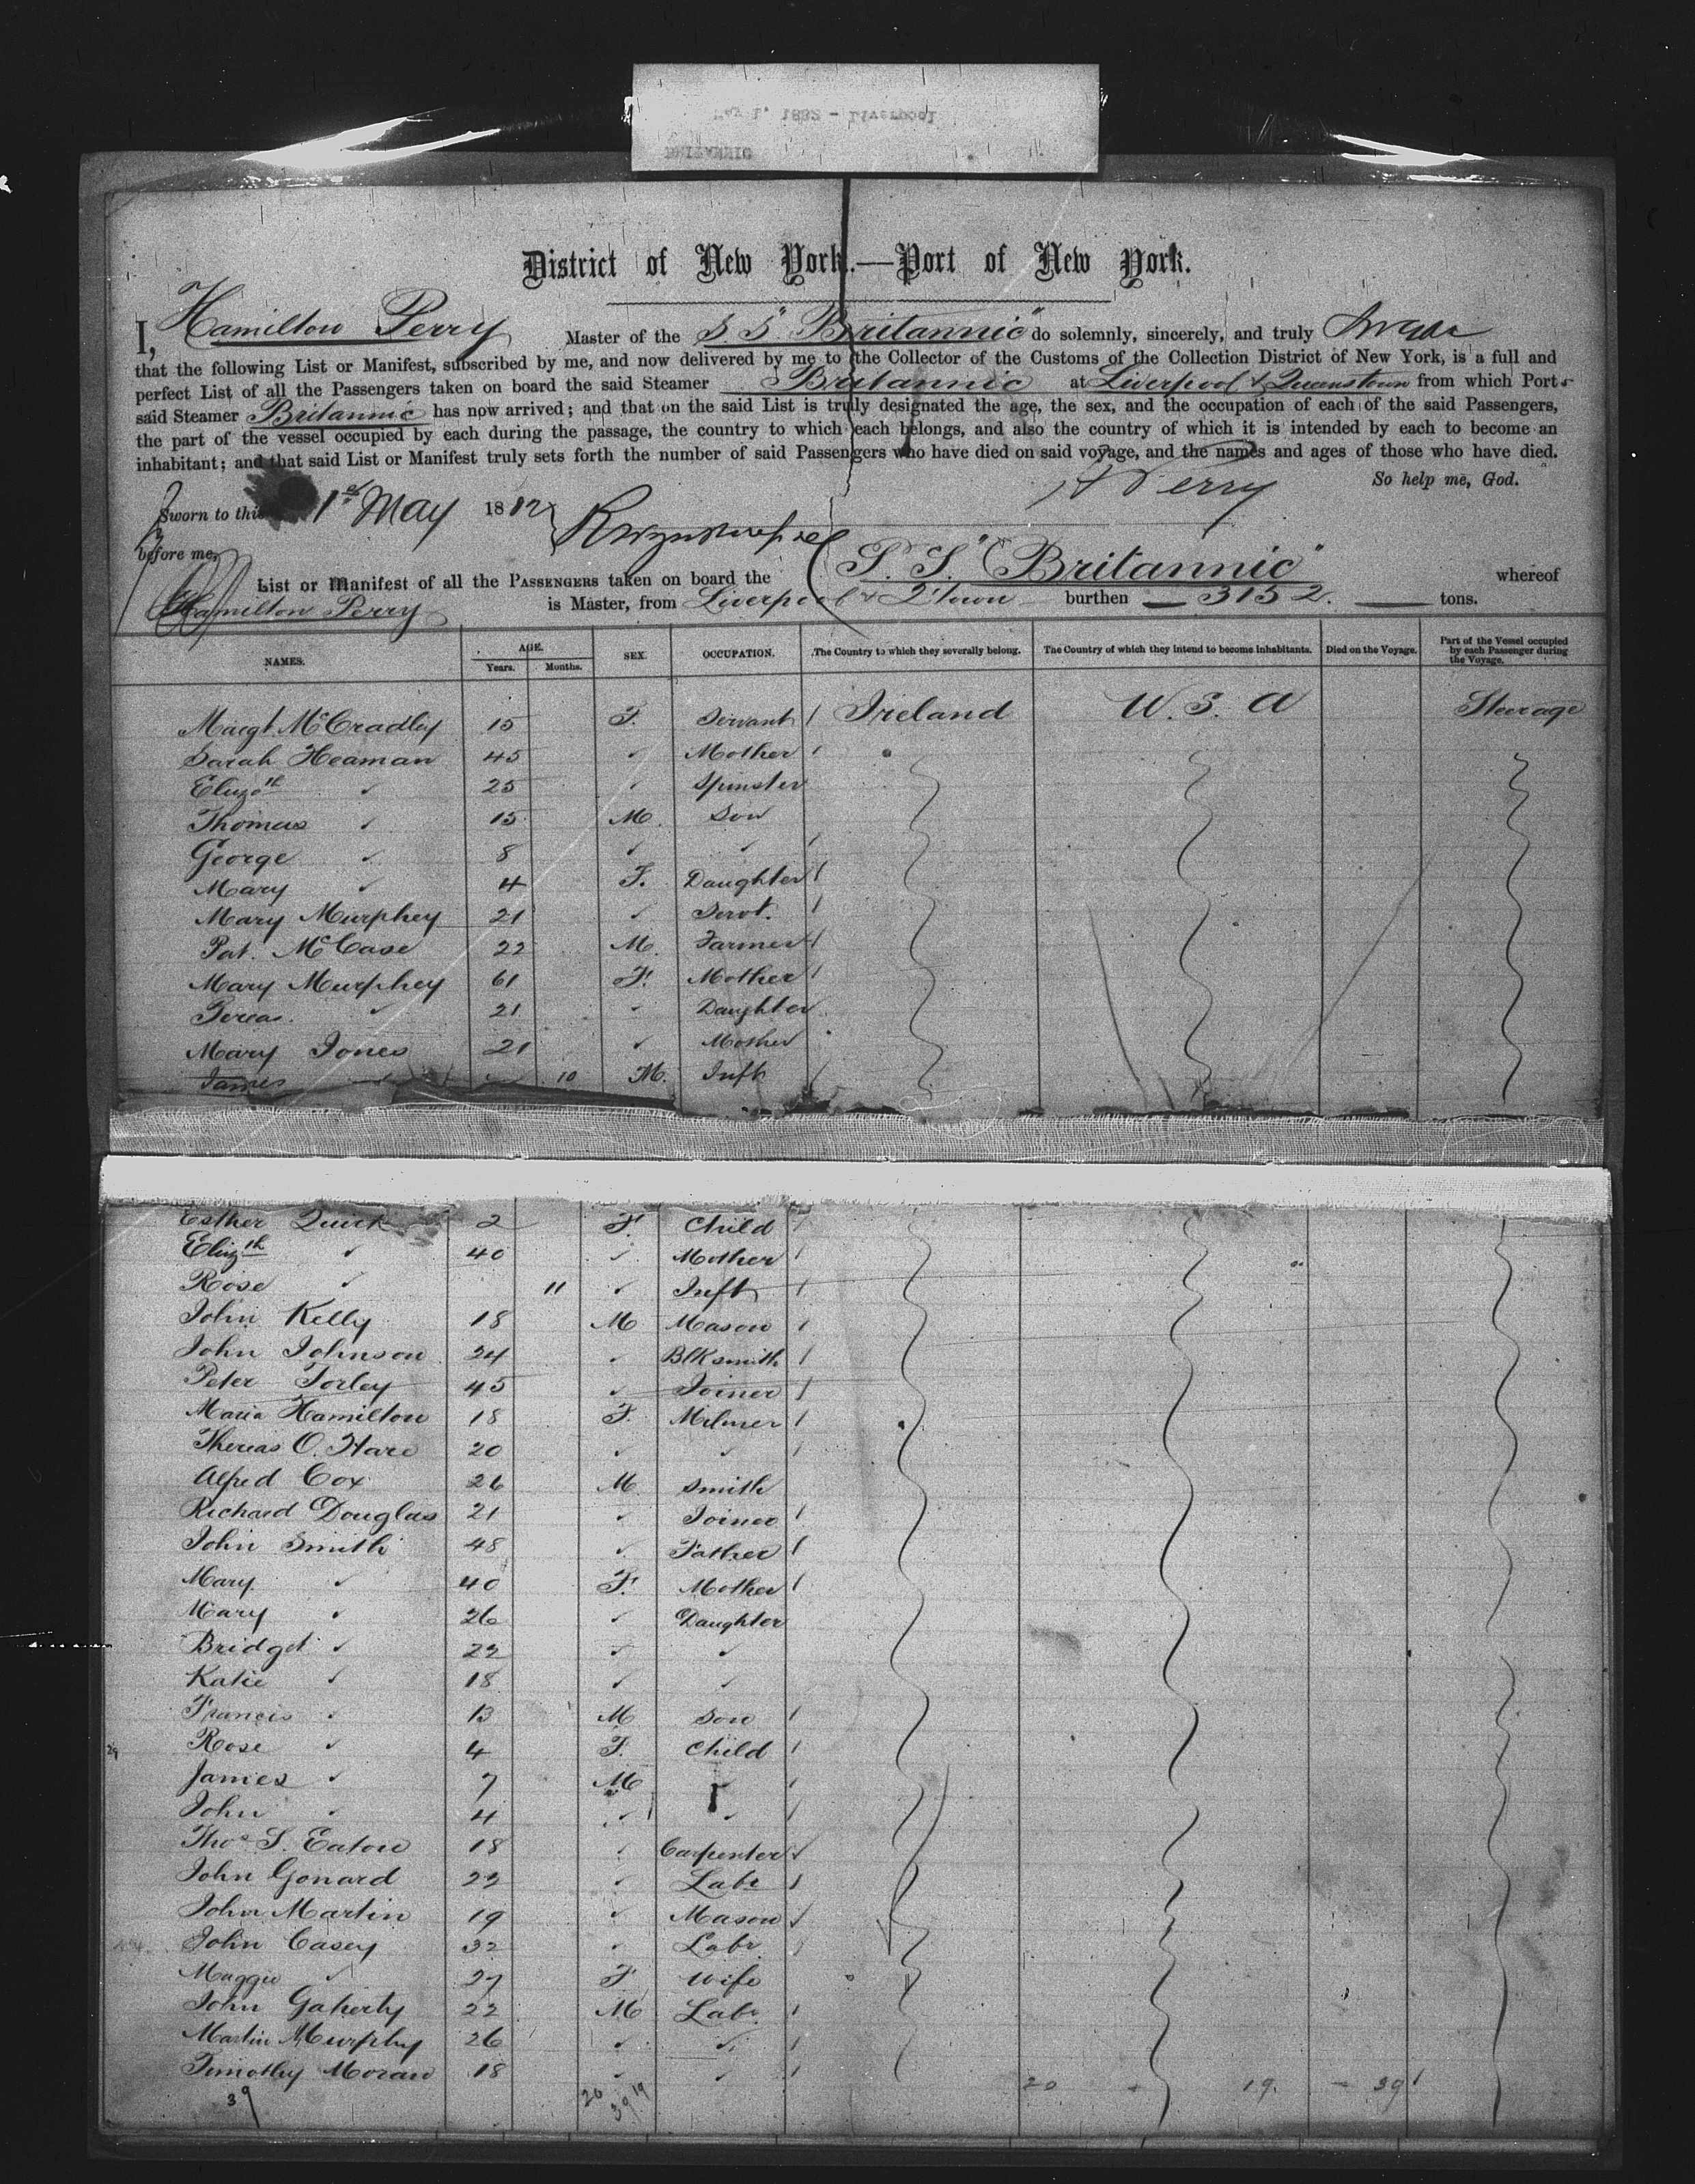 May 1, 1882 - Liverpool
BRITANNIC
District of New York.—Port of New York.
I, Hamilton Perry Master of the S.S. "Britannic" do solemnly, sincerely, and truly swear
that the following List or Manifest, subscribed by me, and now delivered by me to the Collector of the Customs of the Collection District of New York, is a full and
perfect List of all the Passengers taken on board the said Steamer Britannic at Liverpool & Queenstown from which Port s
said Steamer Britannic has now arrived; and that on the said List is truly designated the age, the sex, and the occupation of each of the said Passengers,
the part of the vessel occupied by each during the passage, the country to which each belongs, and also the country of which it is intended by each to become an
inhabitant; and that said List or Manifest truly sets forth the number of said Passengers who have died on said voyage, and the names and ages of those who have died.
So help me, God.
Sworn to this 1st May 1882 H Perry
before me,
List or Manifest of all the PASSENGERS taken on board the S.S. "Britannic" whereof
Hamilton Perry is Master, from Liverpool & Q'town burthen — 3152. — tons.
NAMES. AGE. Years. Months. SEX. OCCUPATION. The Country to which they severally belong. The Country of which they intend to become inhabitants. Died on the Voyage. Part of the Vessel occupied by each Passenger during the Voyage.
Margt McCradley 15 F. Servant Ireland U.S.A Steerage
Sarah Heaman 45 " Mother
Elizth " 25 " Spinster
Thomas " 15 M. Son
George " 8 " "
Mary " 4 F. Daughter
Mary Murphey 21 " Servt.
Pat. McCase 22 M. Farmer
Mary Murphey 61 F. Mother
Tereas. " 21 " Daughter
Mary Jones 21 " Mother
James " 10 M. Inft
Esther Quirk 2 F. Child
Elizth " 40 " Mother
Rose " 11 " Inft
John Kelly 18 M Mason
John Johnson 24 " Blksmith
Peter Torley 45 " Joiner
Maria Hamilton 18 F. Milner
Thereas O. Hare 20 " "
Alfred Cox 26 M Smith
Richard Douglas 21 " Joiner
John Smith 48 " Father
Mary " 40 F. Mother
Mary " 26 " Daughter
Bridget " 22 " "
Katie " 18 " "
Francis " 13 M Son
Rose " 4 F. Child
James " 7 M "
John " 4 " "
Thos S. Eaton 18 " Carpenter
John Gonard 22 " Labr
John Martin 19 " Mason
John Casey 32 " Labr
Maggie " 27 F Wife
John Gaherty 22 M Labr
Martin Murphy 26 " "
Timothy Moran 18 " "
39 20 19 39 20 + 19. - 39